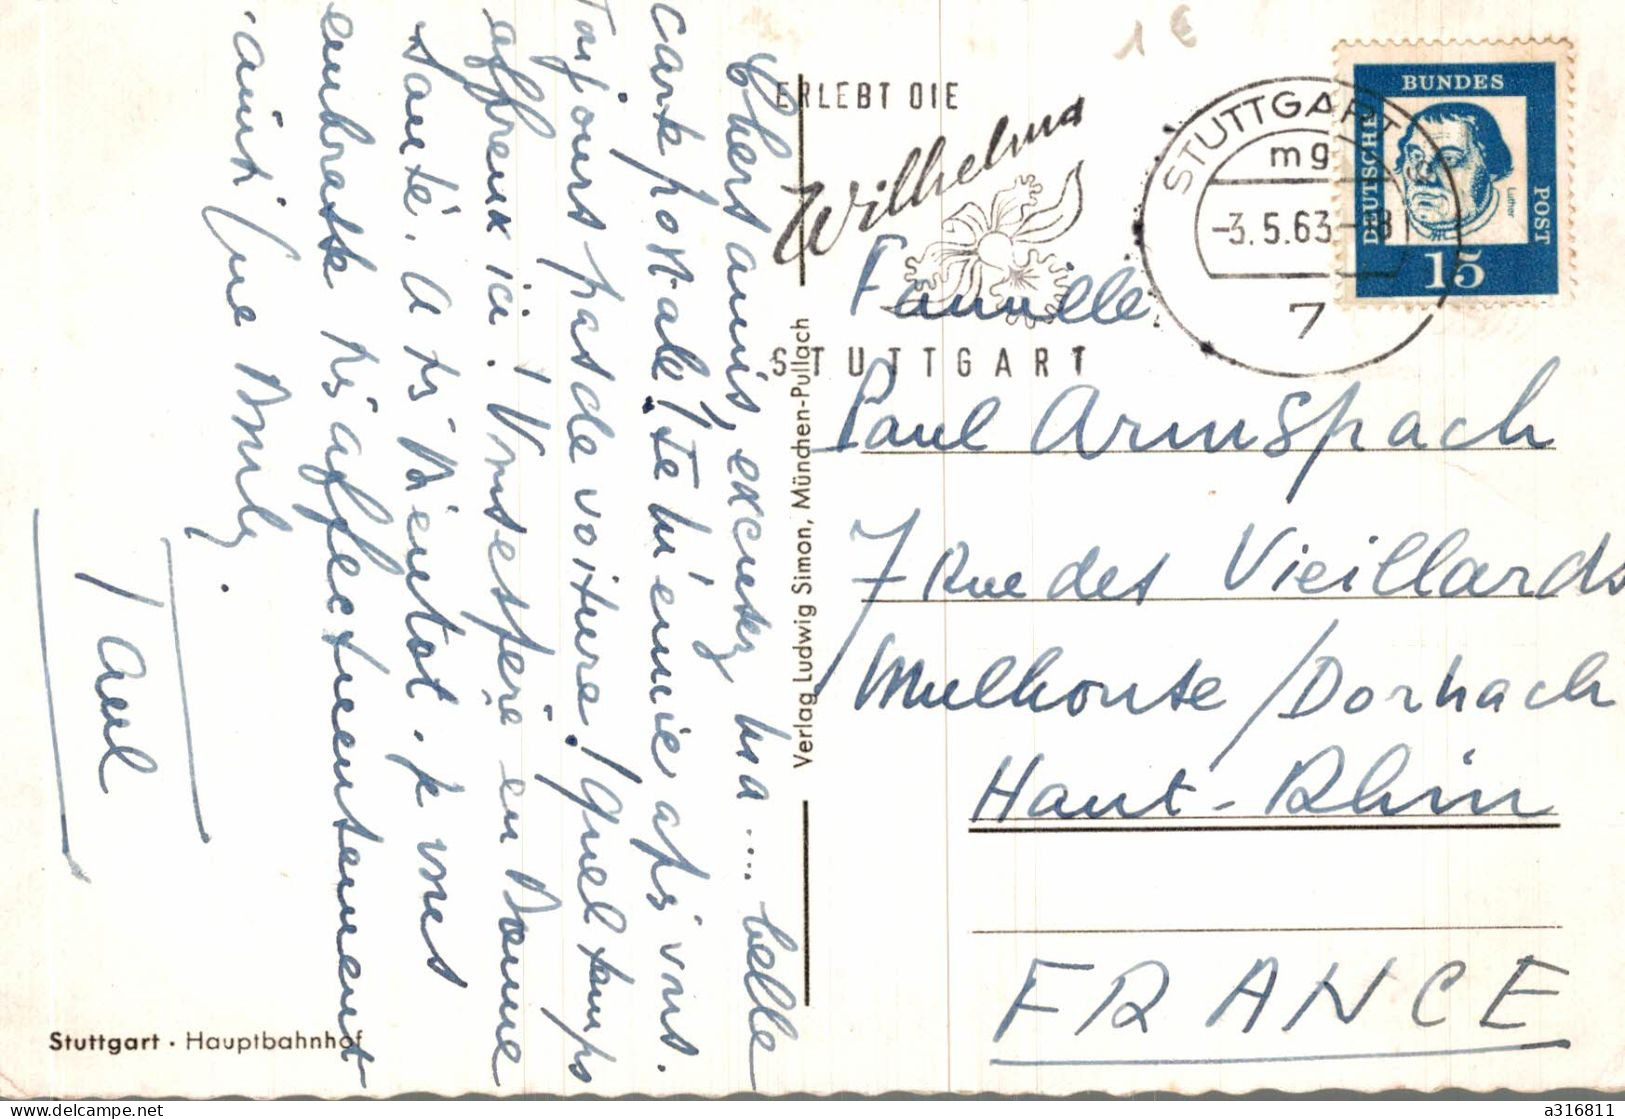 1 €
ERLEBT DIE
Wilhelma
STUTTGART
STUTTGART 9
mg
-3.5.63-18
7
BUNDES
DEUTSCHE
POST
Luther
15
Chers amis, excusez ma .... belle
carte postale! Je m'ennuie après vous.
Toujours pas de voiture! Quel temps
affreux ici. J'espère en bonne
santé. A très bientot. Je vous
embrasse très affectueusement
ainsi que
Paul
Famille
Paul Armspach
7 Rue des Vieillards
Mulhouse / Dornach
Haut-Rhin
FRANCE
Verlag Ludwig Simon, München-Pullach
Stuttgart · Hauptbahnhof
a316811